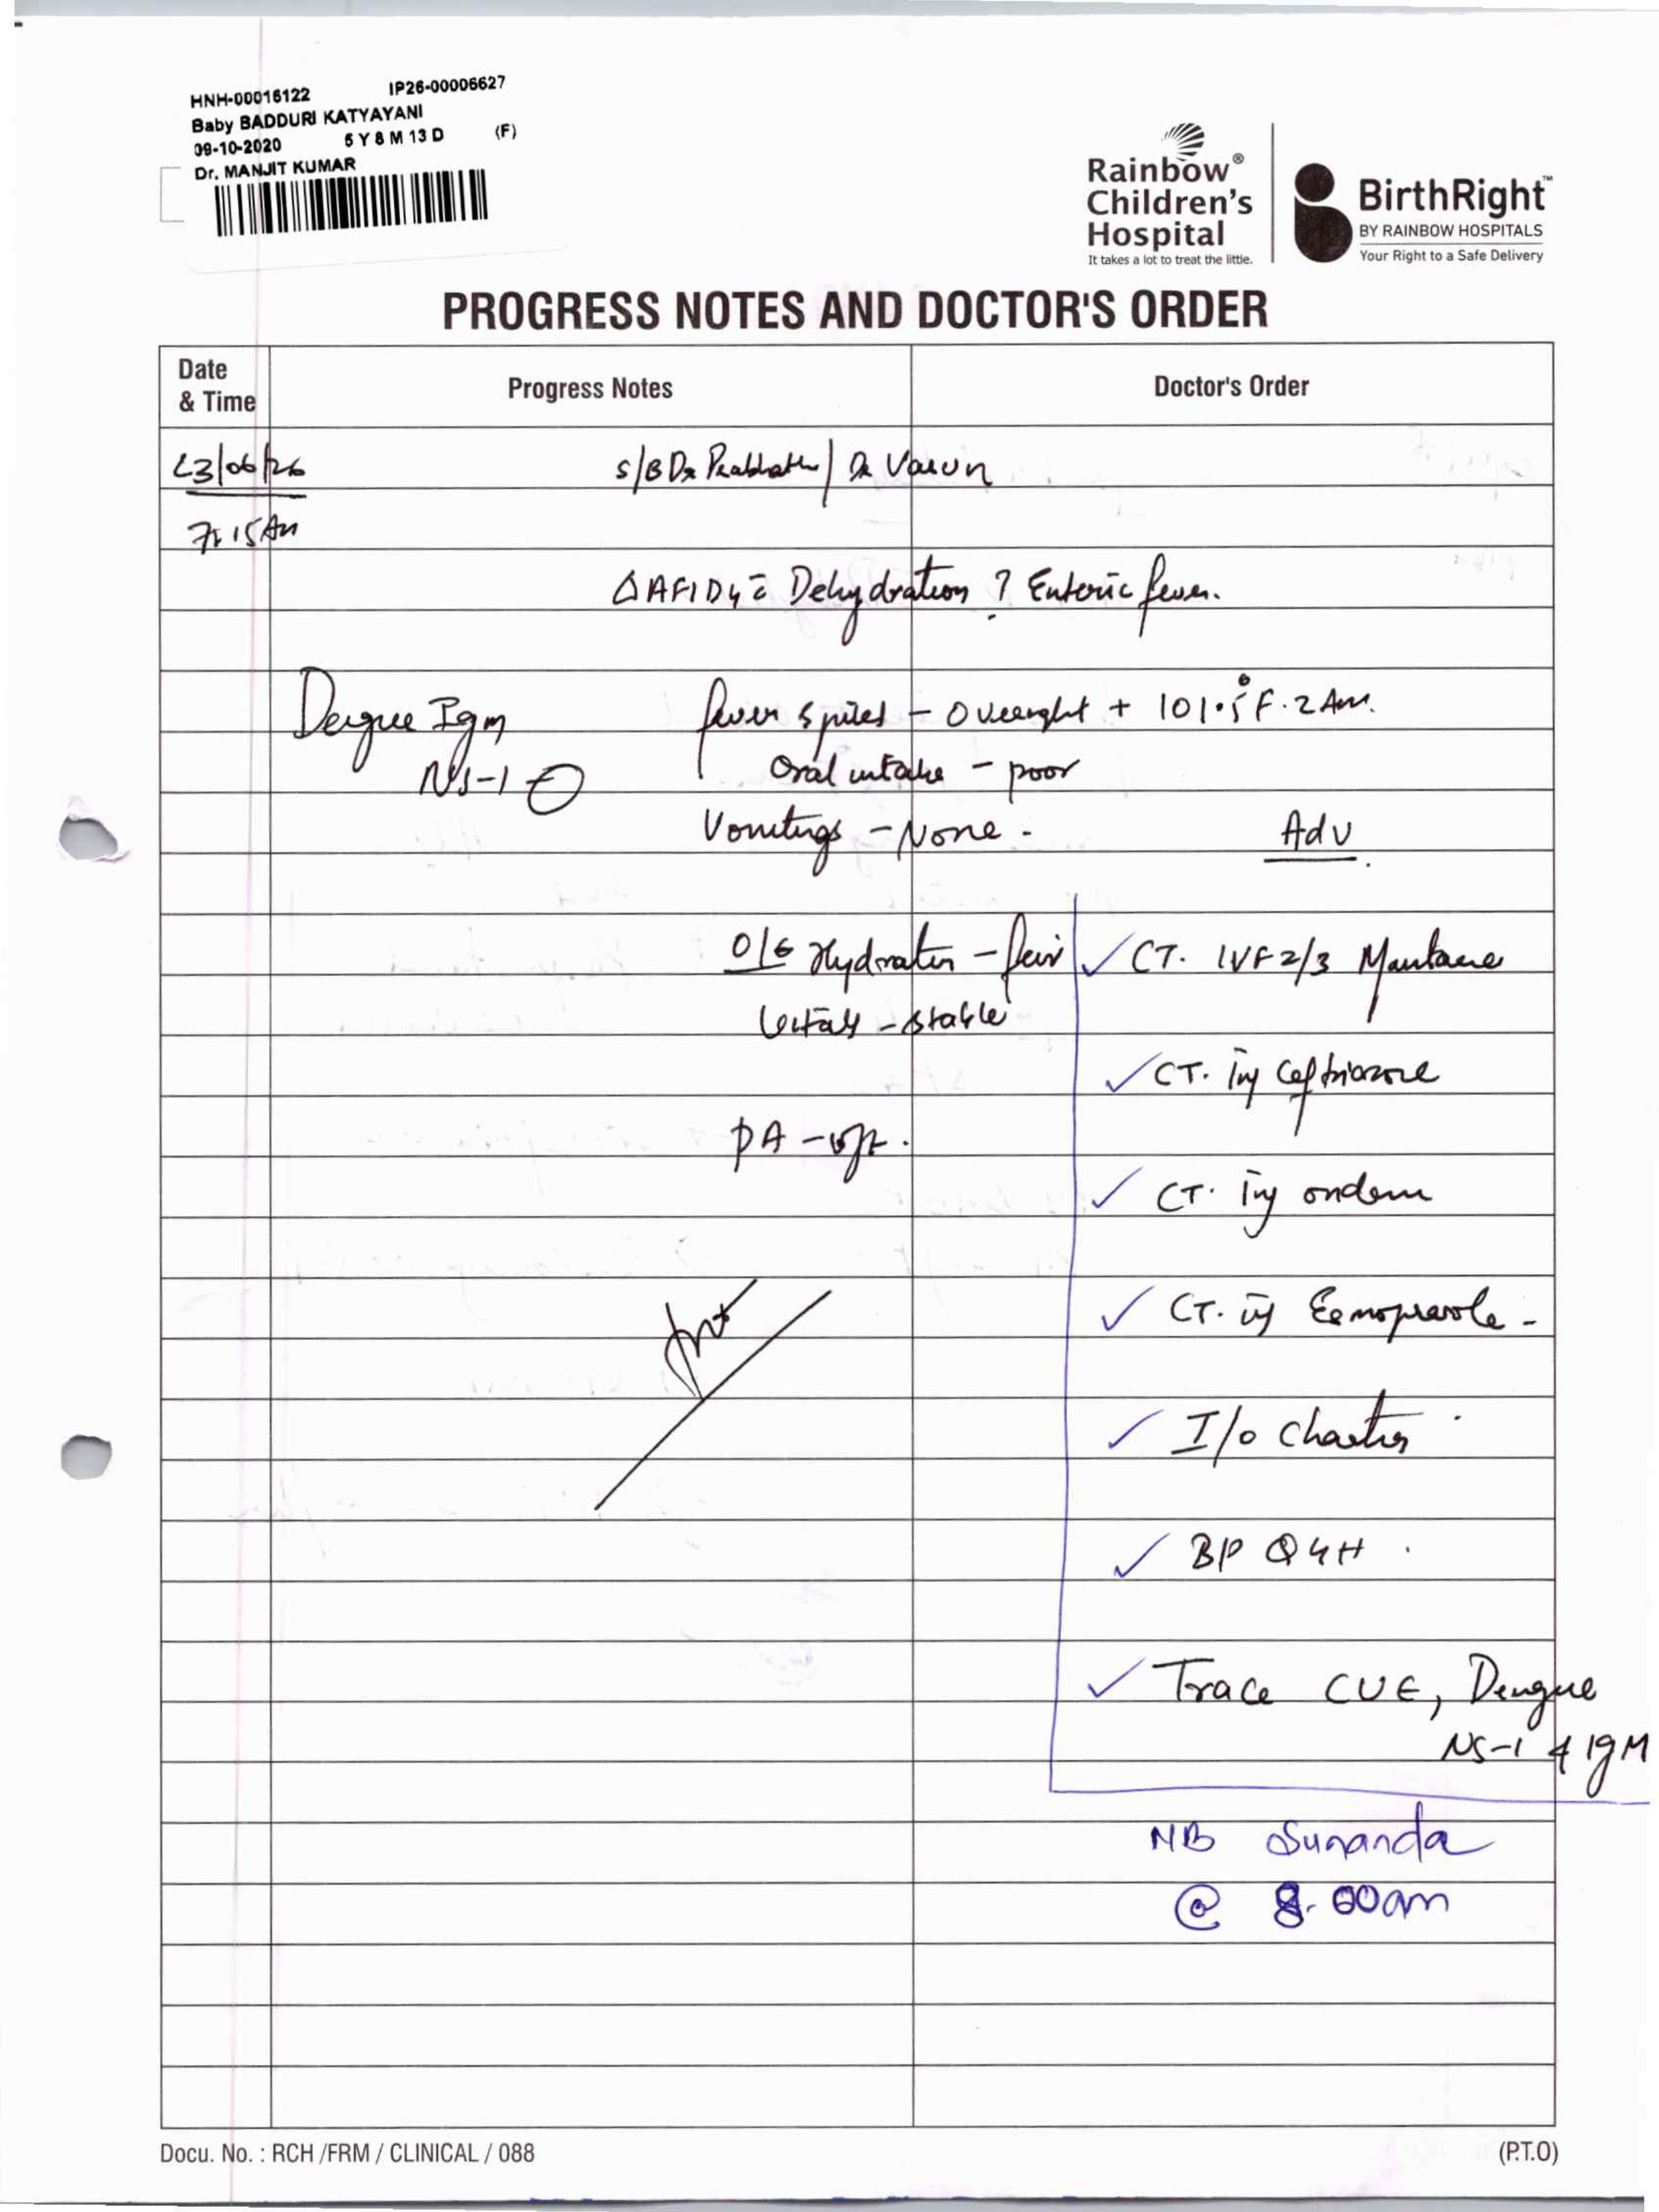 HNH-00016122 IP26-00006627
Baby BADDURI KATYAYANI
09-10-2020 5 Y 8 M 13 D (F)
Dr. MANJIT KUMAR
Rainbow®
Children's
Hospital
It takes a lot to treat the little.
BirthRight™
BY RAINBOW HOSPITALS
Your Right to a Safe Delivery
PROGRESS NOTES AND DOCTOR'S ORDER
Date
& Time
Progress Notes
Doctor's Order
23/06/26
S/B Dr Prabhath / Dr Varun
7:15 Am
Δ AFI D4 c̄ Dehydration ? Enteric fever.
Dengue Igm
NS-1 ⊖
fever spikes - Overnight + 101.5°F. 2 Am.
Oral intake - poor
Vomitings - None -
Adv
O/E Hydration - fair
✓ CT. IVF 2/3 Maintance
Vitals - stable
✓ CT. Inj Ceftriaxone
PA - soft.
✓ CT. Inj ondem
✓ CT. inj Esmoprazole -
✓ I/o Charting
✓ BP Q4H
✓ Trace CUE, Dengue
NS-1 & IgM
NB Sunanda
@ 8.00am
Docu. No. : RCH /FRM / CLINICAL / 088
(P.T.O)